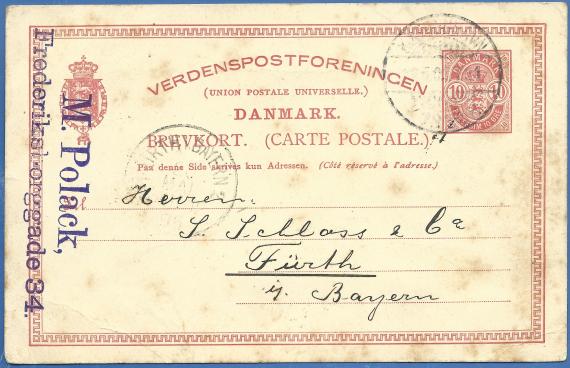 VERDENSPOSTFORENINGEN
(UNION POSTALE UNIVERSELLE.)
DANMARK.
BREVKORT. (CARTE POSTALE.)
Paa denne Side skrives kun Adressen. (Côté réservé à l'adresse.)
DANMARK
10 10
Herren
S. Schloss & Co
Fürth
i/ Bayern
M. Polack,
Frederiksborggade 34.
BAYERN